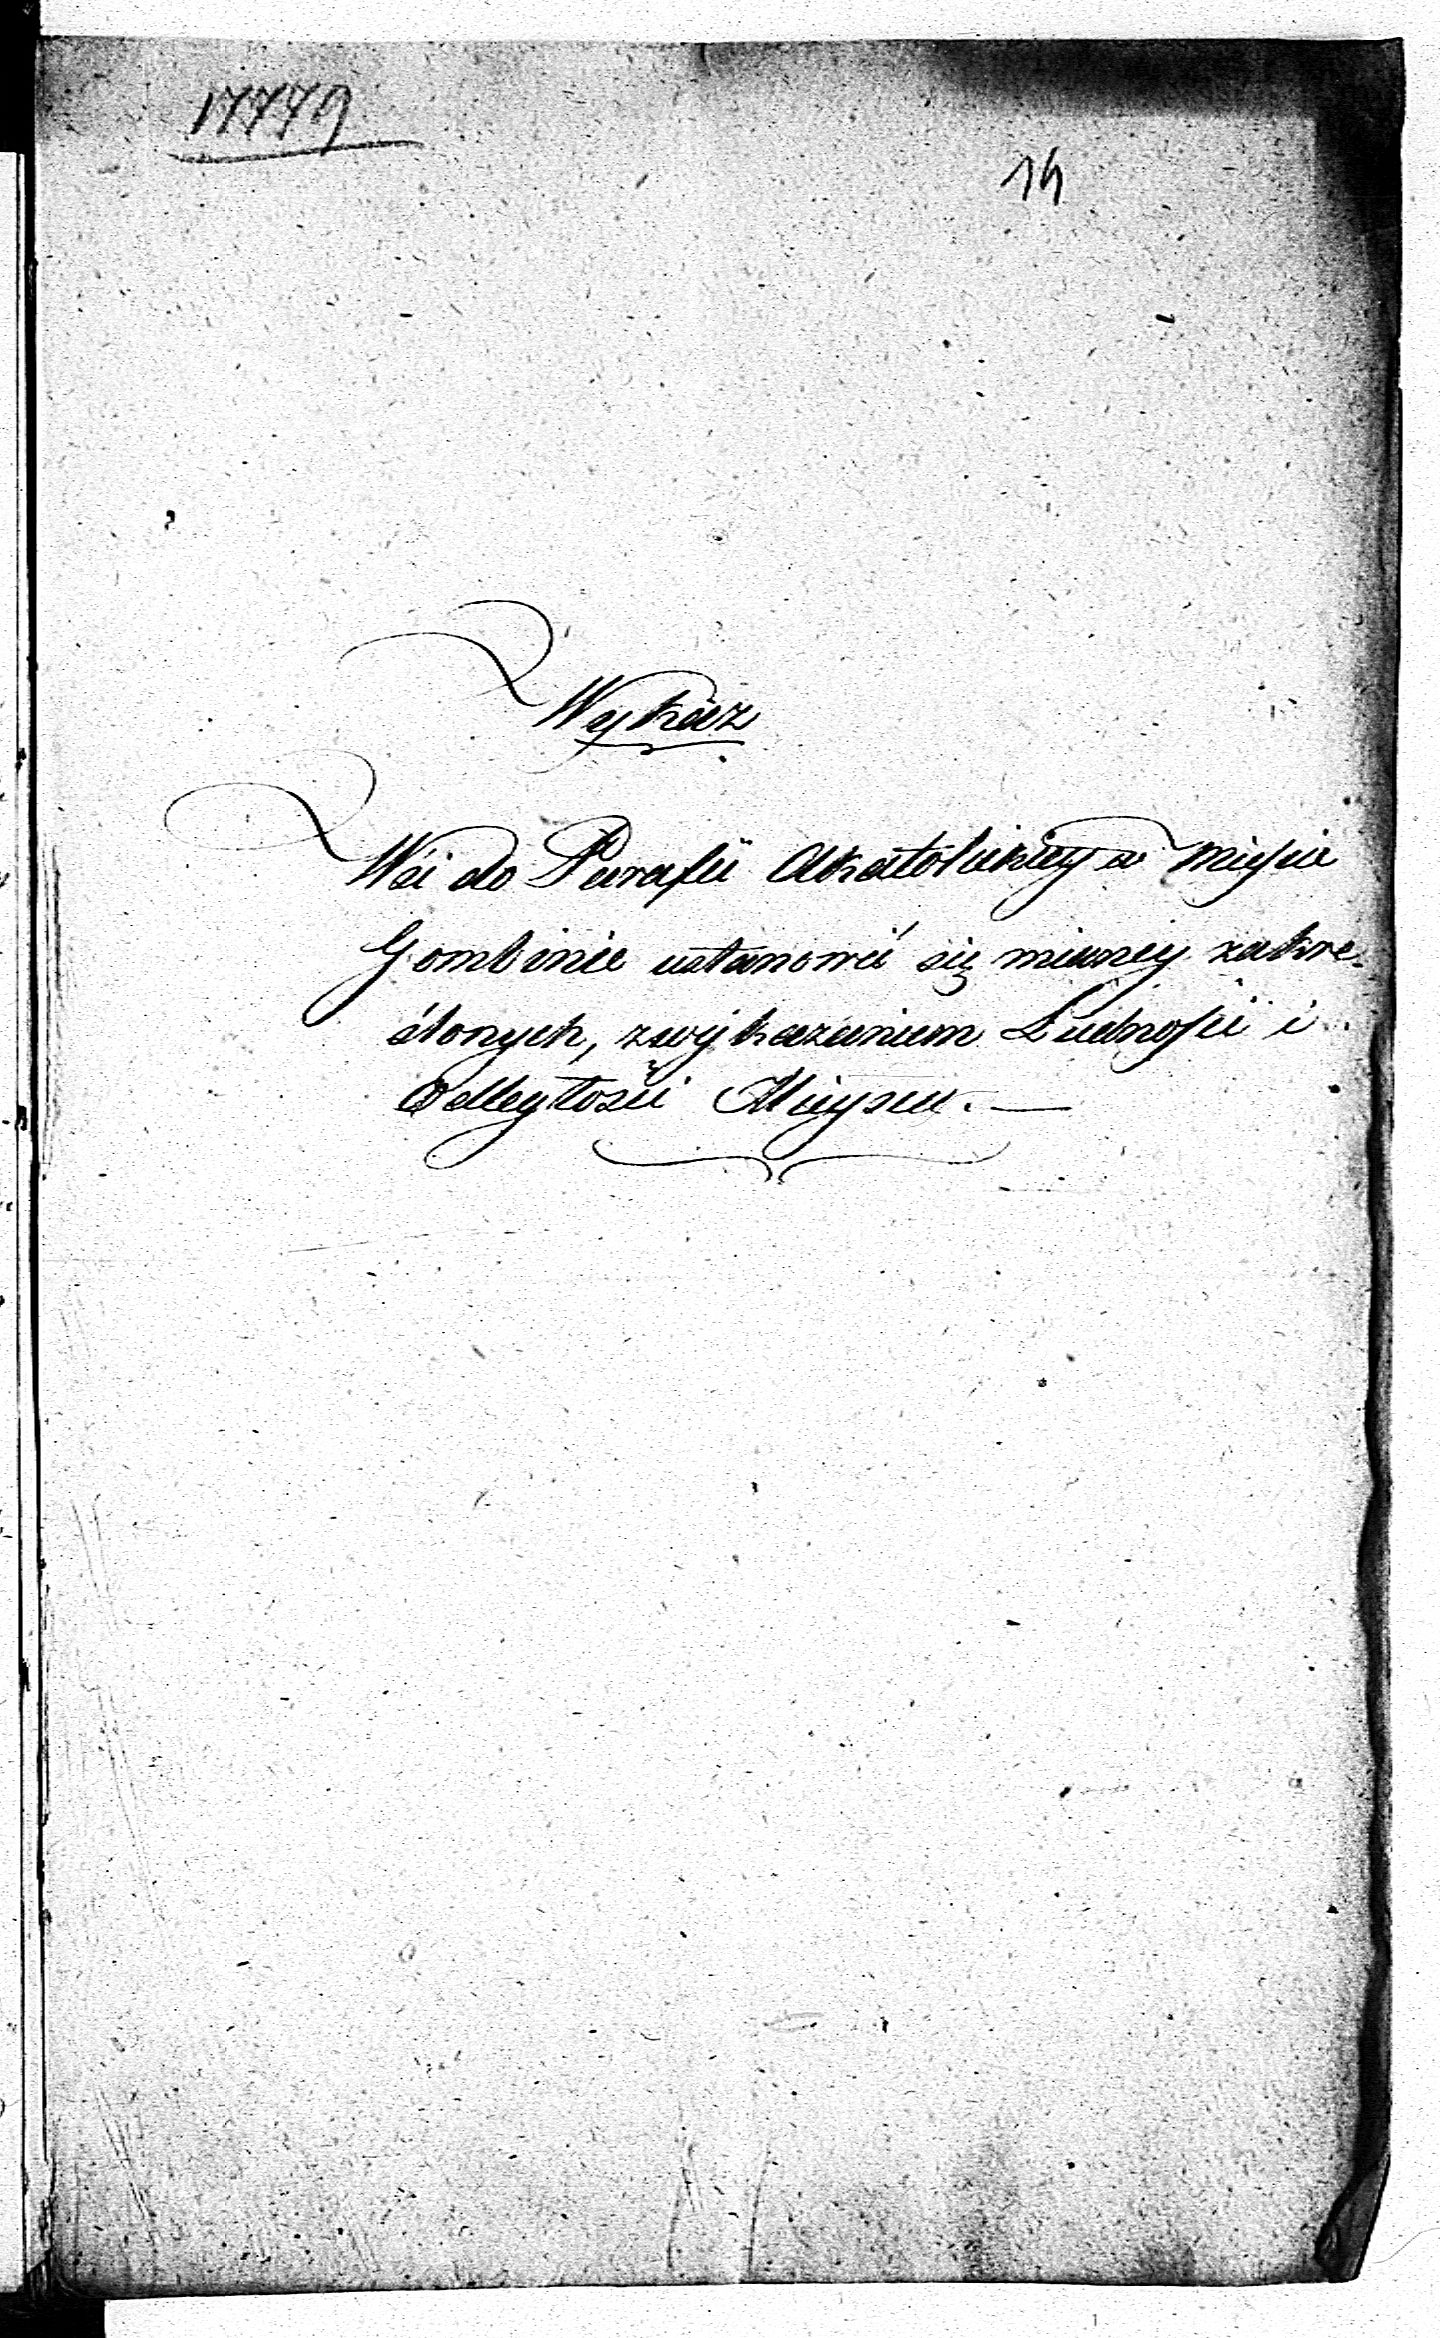 17779
14
Wykaz
Wsi do Parafii Akatolickiey w Mieście
Gombinie ustanowić się mianey zakre-
ślonych, z wykazaniem Ludności i
Odległości Mieysca. —